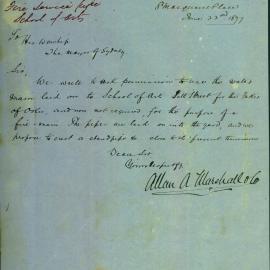 Fire Service Pipe
School of Arts
8 Macquarie Place
June 22nd 1897
To His Worship
The Mayor of Sydney
Sir,
We write to ask permission to use the water
main laid on to School of Art Pitt Street for Palace
of and now not required, for the purpose of a
fire main. The pipes are laid on into the yard, and we
propose to erect a standpipe to close to the present terminus
Dear Sir
Yours respy.
Allan A Marshall & Co